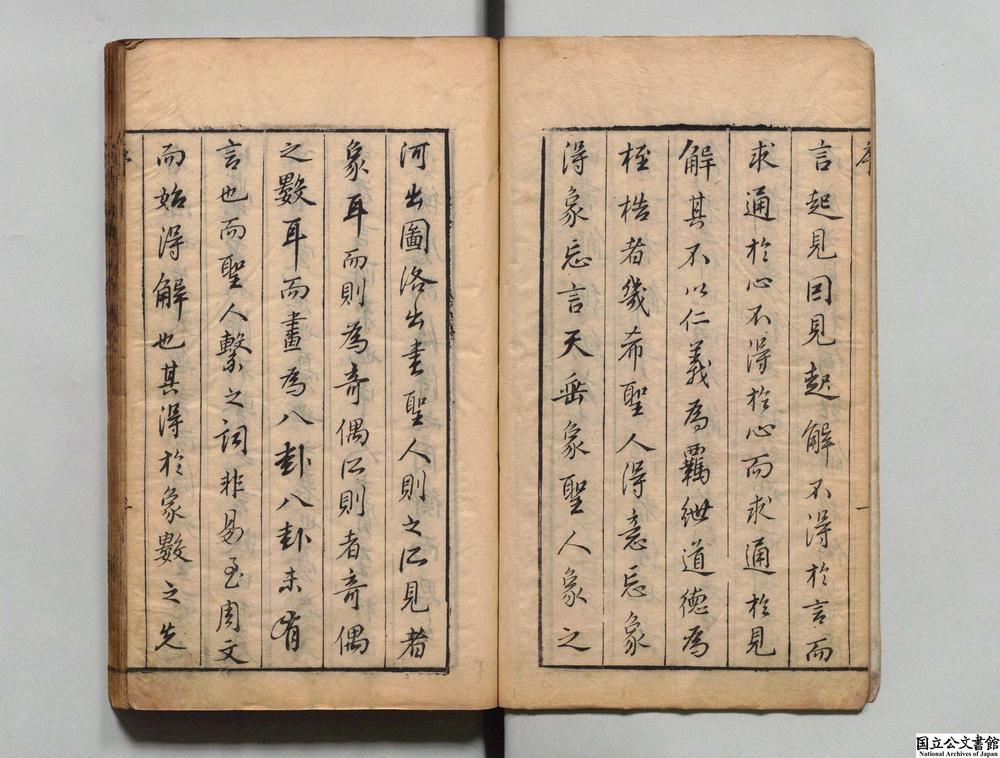 言起見因見起解不得於言而
求通於心不得於心而求通於見
解其不以仁義為羈紲道德為
桎梏者幾希聖人得意忘象
得象忘言天垂象聖人象之
河出圖洛出書聖人則之所見者
象耳而則為奇偶所則者奇偶
之數耳而畫為八卦八卦未有
言也而聖人繫之詞非易至周文
而始得解也其得於象數之先
国立公文書館
National Archives of Japan